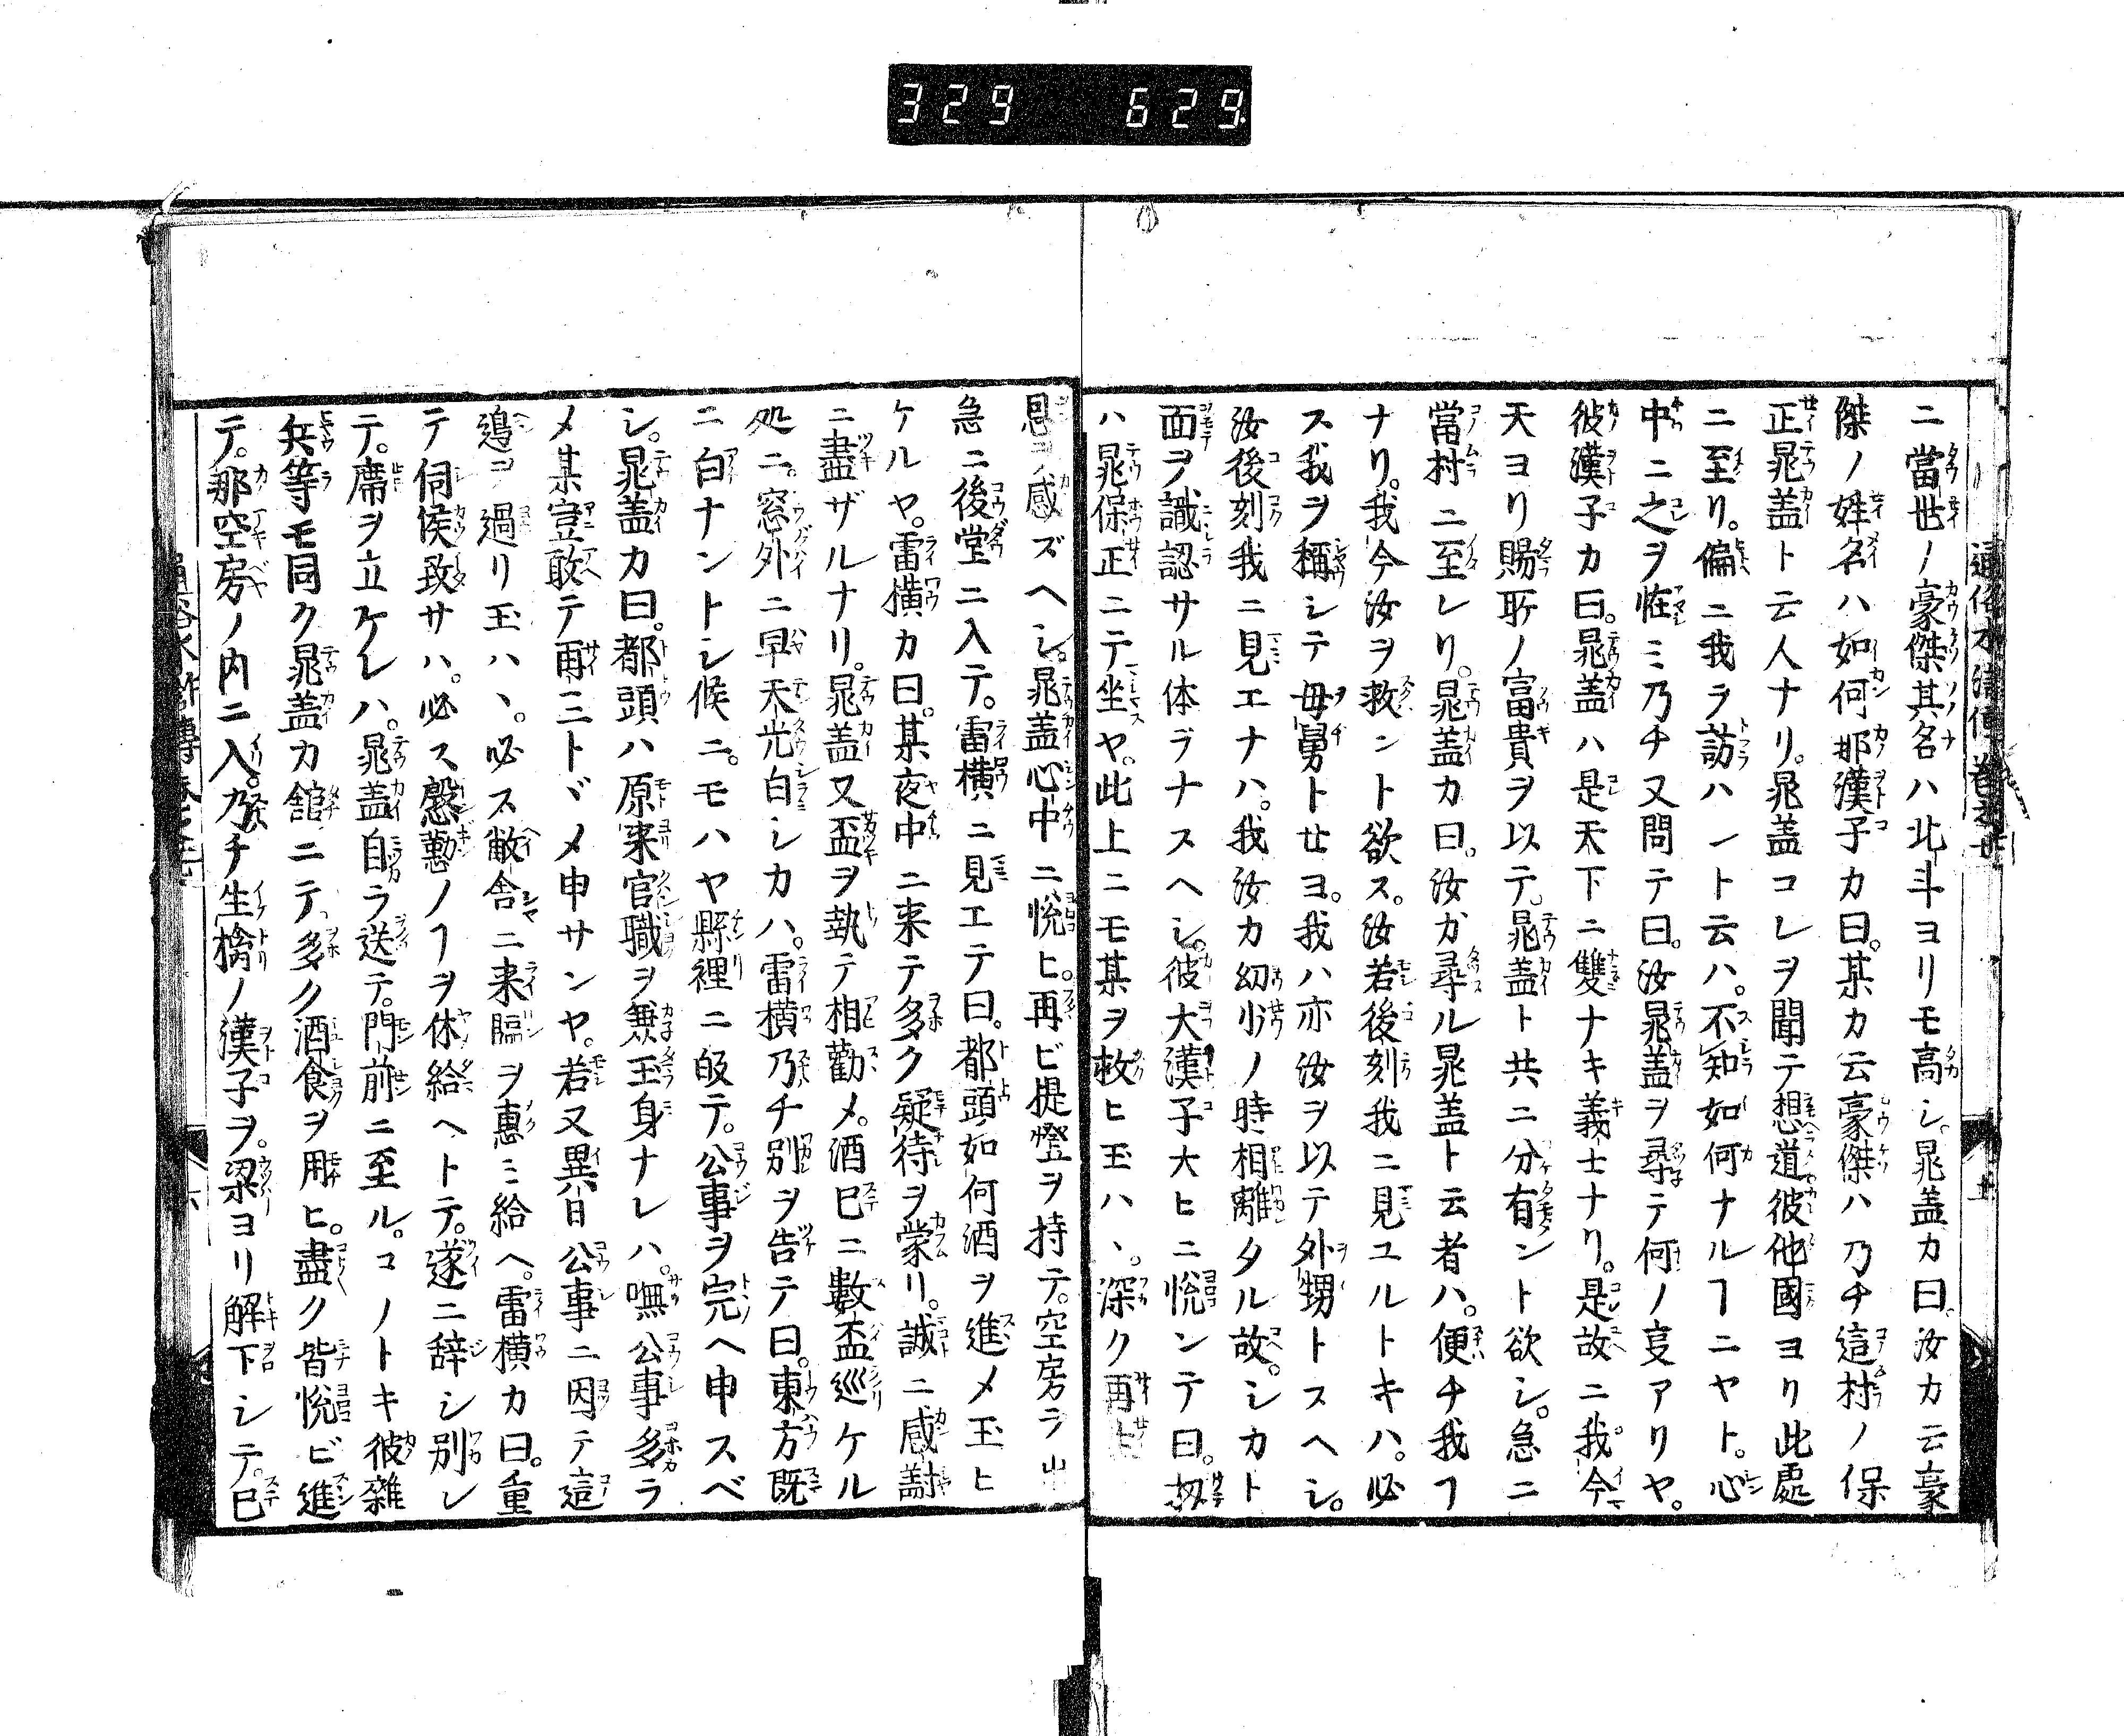 329 629
ニ當世ノ豪傑其名ハ北斗ヨリモ高シ。晁盖カ曰。汝カ云豪
傑ノ姓名ハ如何那漢子カ曰。某カ云豪傑ハ乃チ這村ノ保
正晁盖ト云人ナリ。晁盖コレヲ聞テ想道彼他國ヨリ此處
ニ至リ。偏ニ我ヲ訪ハント云ハ。不知如何ナルヿニヤト。心
中ニ之ヲ恠ミ乃チ又問テ曰。汝晁盖ヲ尋テ何ノ㕝アリヤ。
彼漢子カ曰。晁盖ハ是天下ニ雙ナキ義士ナリ。是故ニ我今
天ヨリ賜所ノ富貴ヲ以テ。晁盖ト共ニ分有ント欲シ。急ニ
當村ニ至レリ。晁盖カ曰。汝カ尋ル晁盖ト云者ハ。便チ我ヿ
ナリ。我今汝ヲ救ント欲ス。汝若後刻我ニ見ユルトキハ。必
ス我ヲ稱シテ母舅トせヨ。我ハ亦汝ヲ以テ外甥トスヘシ。
汝後刻我ニ見エナハ。我汝カ幼少ノ時相離タル故。シカト
面ヲ識認サル体ヲナスヘシ。彼大漢子大ヒニ悅ンテ曰。扨
ハ晁保正ニテ坐ヤ。此上ニモ某ヲ救ヒ玉ハヽ。深ク再生
恩ヲ感ズヘシ。晁盖心中ニ悅ヒ。再ビ提燈ヲ持テ。空房ヲ出
急ニ後堂ニ入テ。雷横ニ見エテ曰。都頭如何酒ヲ進メ玉ヒ
ケルヤ。雷横カ曰。某夜中ニ来テ多ク疑待ヲ蒙リ。誠ニ感謝
ニ盡ザルナリ。晁盖又盃ヲ執テ相勸メ。酒已ニ數盃巡ケル
処ニ。窓外ニ早天光白シカハ。雷横乃チ別ヲ告テ曰。東方既
ニ白ナントシ候ニ。モハヤ縣裡ニ皈テ。公事ヲ完ヘ申スベ
シ。晁盖カ曰。都頭ハ原来官職ヲ兼玉身ナレハ。嘸公事多ラ
メ某豈敢テ再三トヾメ申サンヤ。若又異日公事ニ因テ這
邉ヲ過リ玉ハヽ。必ス敝舎ニ来臨ヲ惠ミ給ヘ。雷横カ曰。重
テ伺侯致サハ。必ス慇懃ノヿヲ休給ヘトテ。遂ニ辞シ別レ
テ。席ヲ立ケレハ。晁盖自ラ送テ。門前ニ至ル。コノトキ彼雜
兵等モ同ク晁盖カ舘ニテ。多ク酒食ヲ用ヒ。盡ク皆悅ビ進
テ。那空房ノ内ニ入。乃チ生擒ノ漢子ヲ。梁ヨリ解下シテ。已